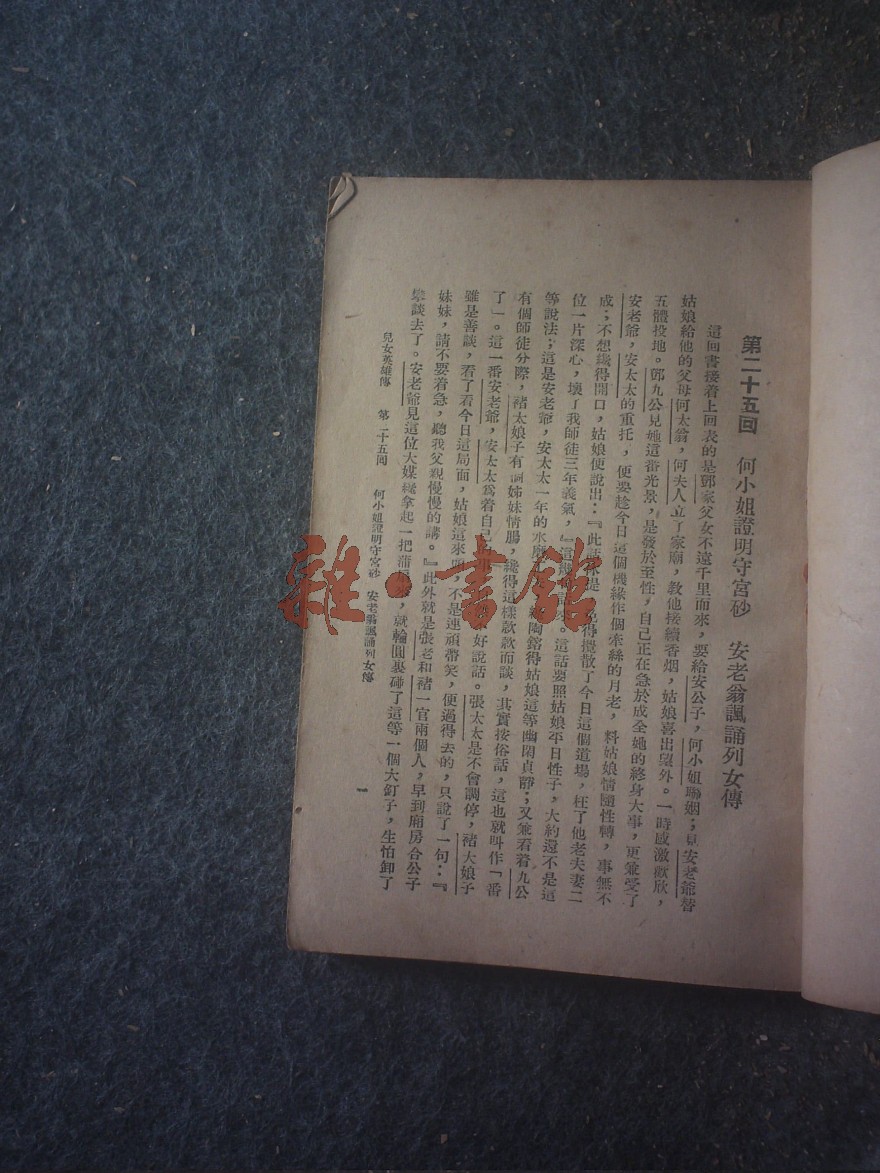 第二十五回　何小姐證明守宮砂　安老翁諷誦列女傳
這回書接着上回表的是鄧家父女不遠千里而來，要給安公子，何小姐聯姻；見安老爺替
姑娘給他的父母何太翁，何夫人立了家廟，教他接續香烟，姑娘喜出望外。一時感激歡欣，
五體投地。鄧九公見她這番光景，是發於至性，自己正在急於成全她的終身大事，更兼受了
安老爺，安太太的重托，便要趁今日這個機緣作個牽絲的月老，料姑娘情隨性轉，事無不
成；不想纔得開口，姑娘便說出：『此話休提，免得攪散了今日這個道場，枉了他老夫妻二
位一片深心，壞了我師徒三年義氣，』這 。這話要照姑娘平日性子，大約還不是這
等說法；這是安老爺，安太太一年的水磨 陶鎔得姑娘這等幽閑貞靜；又兼看着九公
有個師徒分際，褚大娘子有個姊妹情腸，纔得這樣款款而談，其實按俗話，這也就叫作「番
了」。這一番安老爺，安太太爲着自己 好說話。張太太是不會調停，褚大娘子
雖是善談，看了看今日這局面，姑娘這來頭，不是連頑帶笑，便過得去的，只說了一句：『
妹妹，請不要着急，聽我父親慢慢的講。』此外就是張老和褚一官兩個人，早到廂房合公子
攀談去了。安老爺見這位大媒纔拿起一把蒲扇來，就輪圓裹碰了這等一個大釘子，生怕卸了
兒女英雄傳　第二十五回　何小姐證明守宮砂　安老翁諷誦列女傳
一
雜·書館